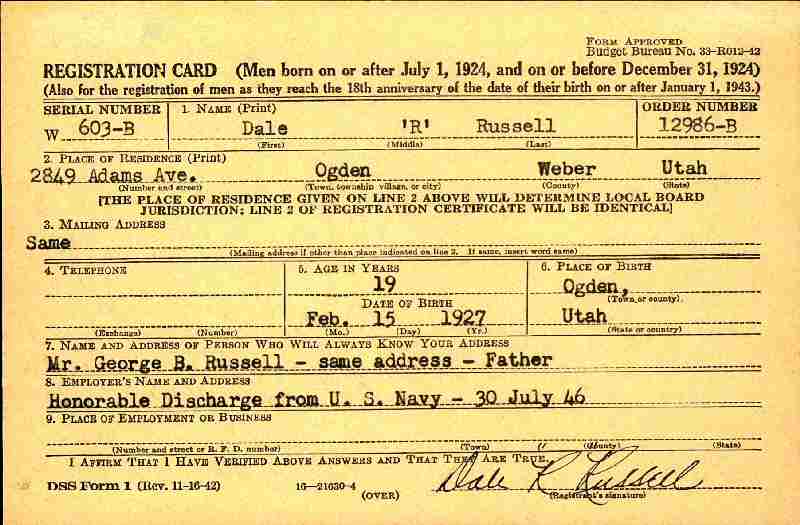 FORM APPROVED
Budget Bureau No. 33-R012-42
REGISTRATION CARD (Men born on or after July 1, 1924, and on or before December 31, 1924)
(Also for the registration of men as they reach the 18th anniversary of the date of their birth on or after January 1, 1943.)
SERIAL NUMBER 1. NAME (Print) ORDER NUMBER
W 603-B Dale 'R' Russell 12986-B
(First) (Middle) (Last)
2. PLACE OF RESIDENCE (Print)
2849 Adams Ave. Ogden Weber Utah
(Number and street) (Town, township village, or city) (County) (State)
[THE PLACE OF RESIDENCE GIVEN ON LINE 2 ABOVE WILL DETERMINE LOCAL BOARD
JURISDICTION; LINE 2 OF REGISTRATION CERTIFICATE WILL BE IDENTICAL]
3. MAILING ADDRESS
Same
(Mailing address if other than place indicated on line 2. If same, insert word same)
4. TELEPHONE 5. AGE IN YEARS 6. PLACE OF BIRTH
19 Ogden,
DATE OF BIRTH (Town or county)
Feb. 15 1927 Utah
(Exchange) (Number) (Mo.) (Day) (Yr.) (State or country)
7. NAME AND ADDRESS OF PERSON WHO WILL ALWAYS KNOW YOUR ADDRESS
Mr. George B. Russell - same address - Father
8. EMPLOYER'S NAME AND ADDRESS
Honorable Discharge from U. S. Navy - 30 July 46
9. PLACE OF EMPLOYMENT OR BUSINESS
(Number and street or R. F. D. number) (Town) (County) (State)
I AFFIRM THAT I HAVE VERIFIED ABOVE ANSWERS AND THAT THEY ARE TRUE.
Dale R Russell
DSS Form 1 (Rev. 11-16-42) 16-21630-4 (Registrant's signature)
(OVER)